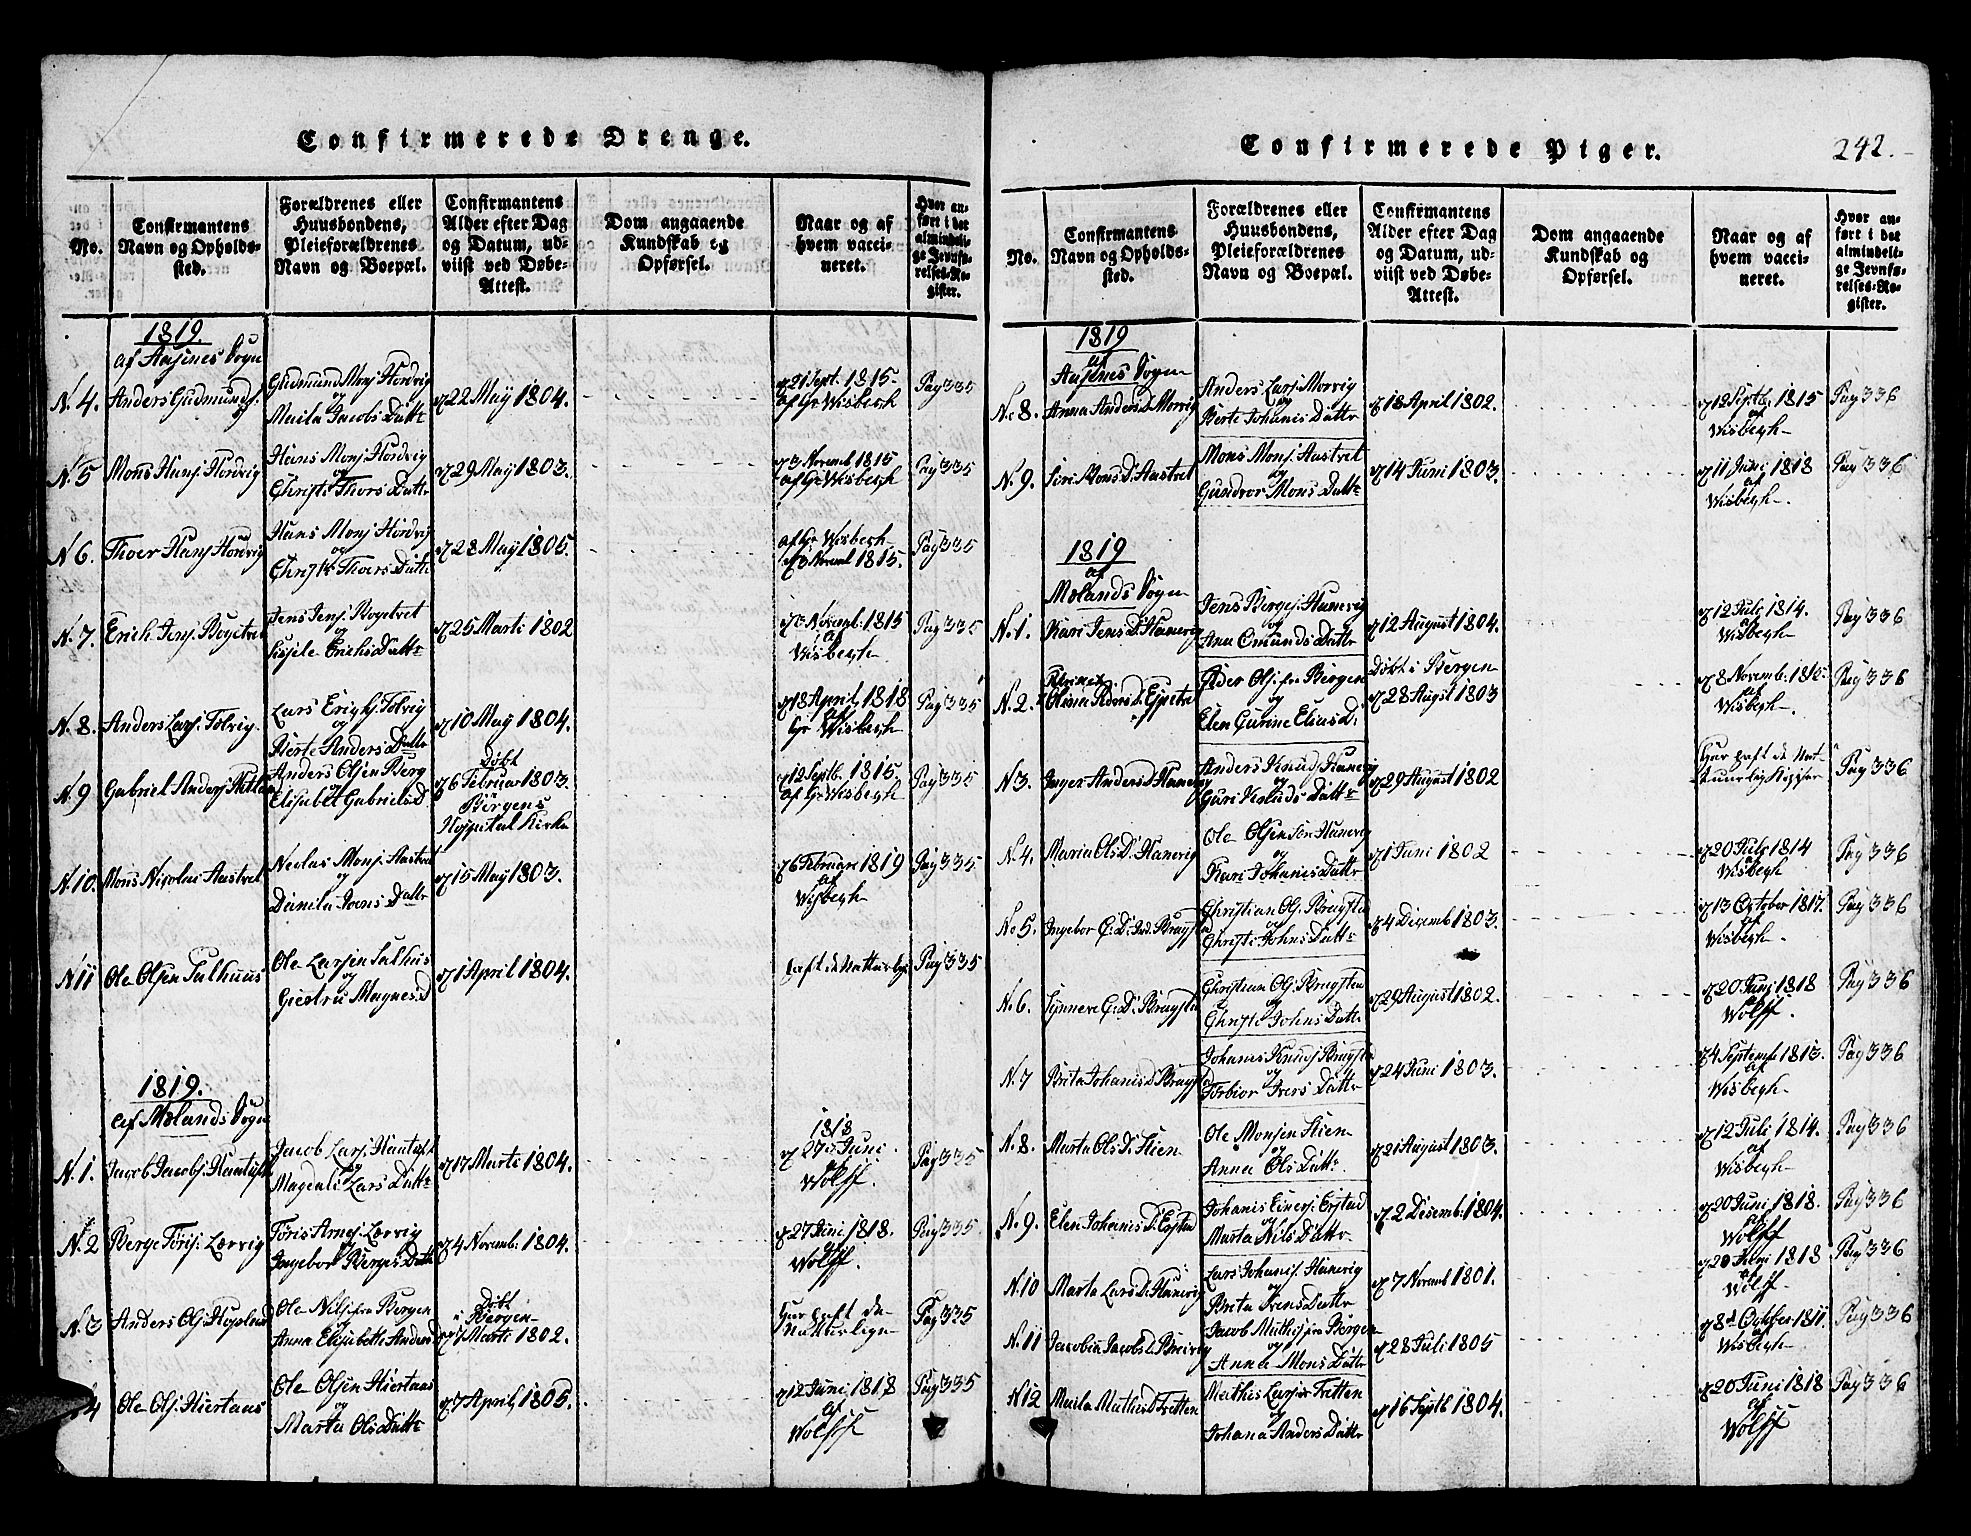 Confirmerede Drenge.
No.
Confirmantens
Navn og Opholds-
sted.
Forældrenes eller
Huusbondens,
Pleieforældrenes
Navn og Boepæl.
Confirmantens
Alder efter Dag
og Datum, ud-
viist ved Døbe-
Attest.
Dom angaaende
Kundskab og
Opførsel.
Naar og af
hvem vacci-
neret.
Hvor an-
ført i det
almindeli-
ge Jevnfø-
relses-Re-
gister.
1819.
af Ausines Sogn
N. 4. Anders Gudmunds.
Gudmund Monj Hordvig
og
Maila Jacobs Datt
22 May 1804.
21 Sept. 1815.
af Hr Wisbegh
Pag 335
N. 5 Mons Hansj Hordvig
Hans Monj Hordvig
og
Christi Thors Datt
29 May 1803.
3 Novemb 1815
af Hr Wisbegh
Pag 335
N. 6. Thoer Hansj Hordvig
Hans Monj Hordvig
og
Christi Thoers Datt
28 May 1805.
af Hr Wisbegh
3 Novemb 1815.
Pag 335
N. 7. Erich Jensj
Jens Jensj
og
Erichs Datt
25 Marti 1802
Novemb. 1815
af
Wisbegh
Pag 335
N. 8. Anders Larsj. Tolvig.
Lars Tolvig
og
Berte Anders Datt
10 May 1804.
18 April 1818
af
Hr Wisbegh
Pag 335
N. 9 Gabriel Andersj
Anders Olsen Berg
og
Elisabet Gabriels D
Døbt
6 Februar 1803.
Bergens
Hospital Kirke
12 Septb. 1815.
af Hr Wisbegh
Pag 335
N. 10. Mons Nicolai Austvet
Neclas Monj Austvet
og
Datt
15 May 1803.
6 Februari 1819
af
Wisbegh
Pag 335
N. 11 Ole Olsen Salhuus
Ole Larsen Salhus
og
Magnes D
1 April 1804.
haft de Naturlige
Pag 335
1819.
af Mølands Sogn
N. 1. Jacob Jacobsj
Jacob Larsj
og
Magdali Lars Datt
17 Marti 1804.
1818
27 Juni
af
Wolff.
Pag 335
N. 2 Berge Lervig
Lervig
og
Ingebor Berges Datt
4 Novemb. 1804.
27 Juni 1818.
af
Wolff.
Pag 335
N. 3 Anders Olsj Hopland
Ole Nilsj fra Bergen
og
Anna Elisabeth Anders D
Døbt
i Bergen
7 Marti 1802.
Har haft de
Naturlige
Pag 335
4 Ole Olsj. Hiertaas
Ole Olsen Hiertaas
og
Marta Ols Datt
7 April 1805.
12 Juni 1818
af
Wolff
Pag 335
Confirmerede Piger.
242.
No.
Confirmantens
Navn og Opholds-
sted.
Forældrenes eller
Huusbondens,
Pleieforældrenes
Navn og Boepæl.
Confirmantens
Alder efter Dag
og Datum, ud-
viist ved Døbe-
Attest.
Dom angaaende
Kundskab og
Opførsel.
Naar og af
hvem vacci-
neret.
Hvor an-
ført i det
almindeli-
ge Jevnfø-
relses-Re-
gister.
1819
af
Ausines Sogn
No 8. Anna Anders D. Morvig
Anders Larsj Morvig
og
Berte Johanis Datt
18 April 1802.
12 Septb. 1815
af
Wisbegh
Pag 336
N. 9. Siri Mons D. Austvet
Mons Monsj. Austvet
og
Gundvor Mons Datt
14 Juni 1803.
11 Juni 1818
af
Wisbegh
Pag 336
1819
af
Mølands Sogn
No. 1. Kari Jens D. Hanevig
Jens Bergesj. Hanevig
og
Ana Omunds Datt
12 August 1804.
12 Juli 1814.
af
Wisbegh
Pag 336
N. 2. Olivia D.
Peder Olsj. fra Bergen
og
Elen Gurine Elias D.
Døbt i Bergen
28 August 1803
8 Novemb. 1812
af
Wisbegh.
Pag 336
N. 3. Inger Anders D. Hanevig
Anders Knudsj Hanevig
og
Guri Knuds Datt
29 August 1802
Har haft de Nat-
uurlig Kopper
Pag 336
N. 4. Maria Ols D. Hanevig
Ole Olsen Hanevig
og
Kari Johanis Datt
1 Juni 1802
20 July 1814
af
Wisbegh
Pag 336
No 5. Ingebor C. D.
Christian Olsj.
og
Christi Johns Datt
4 Decemb 1803.
13 October 1817.
af
Wisbegh.
Pag 336
N. 6. Synneve C. D.
Christian Olsj.
og
Christi Johns Datt
29 August 1802.
20 Juni 1818
af
Wolff.
Pag 336
N. 7 Brita Johanis D.
Johanis Knudsj
og
Torbior Ivers Datt
24 Juni 1803.
4 Septemb 1813.
af
Wisbegh
Pag 336
N. 8. Marta Ols D. Stien
Ole Monsen Stien
og
Anna Ols Datt
21 August 1803.
12 Juli 1814.
af
Wisbegh
Pag 336
N. 9. Elen Johanis D. Erstad
Johanis Einersj. Erstad
og
Marta Nils Datt
2 Desemb. 1804.
20 Juni 1818.
af
Wolff
Pag 336
N. 10 Marta Lars D. Hanevig
Lars Johanisj. Hanevig
og
Brita Ivers Datt
7 Novemb 1801.
20 Juni 1818
af
Wolff
Pag 336
N. 11 Jacobia Jacobs D. Breivig
Jacob Mathisj fra Bergen
og
Anna Mons Datt
28 Juli 1805
8 October 1811.
af
Wisbegh
Pag 336
N. 12 Maila Mathis D. Tretten
Mathis Larsen Tretten
og
Johana Anders Datt
16 Septb 1804.
20 Juni 1818
af
Wolff
Pag 336